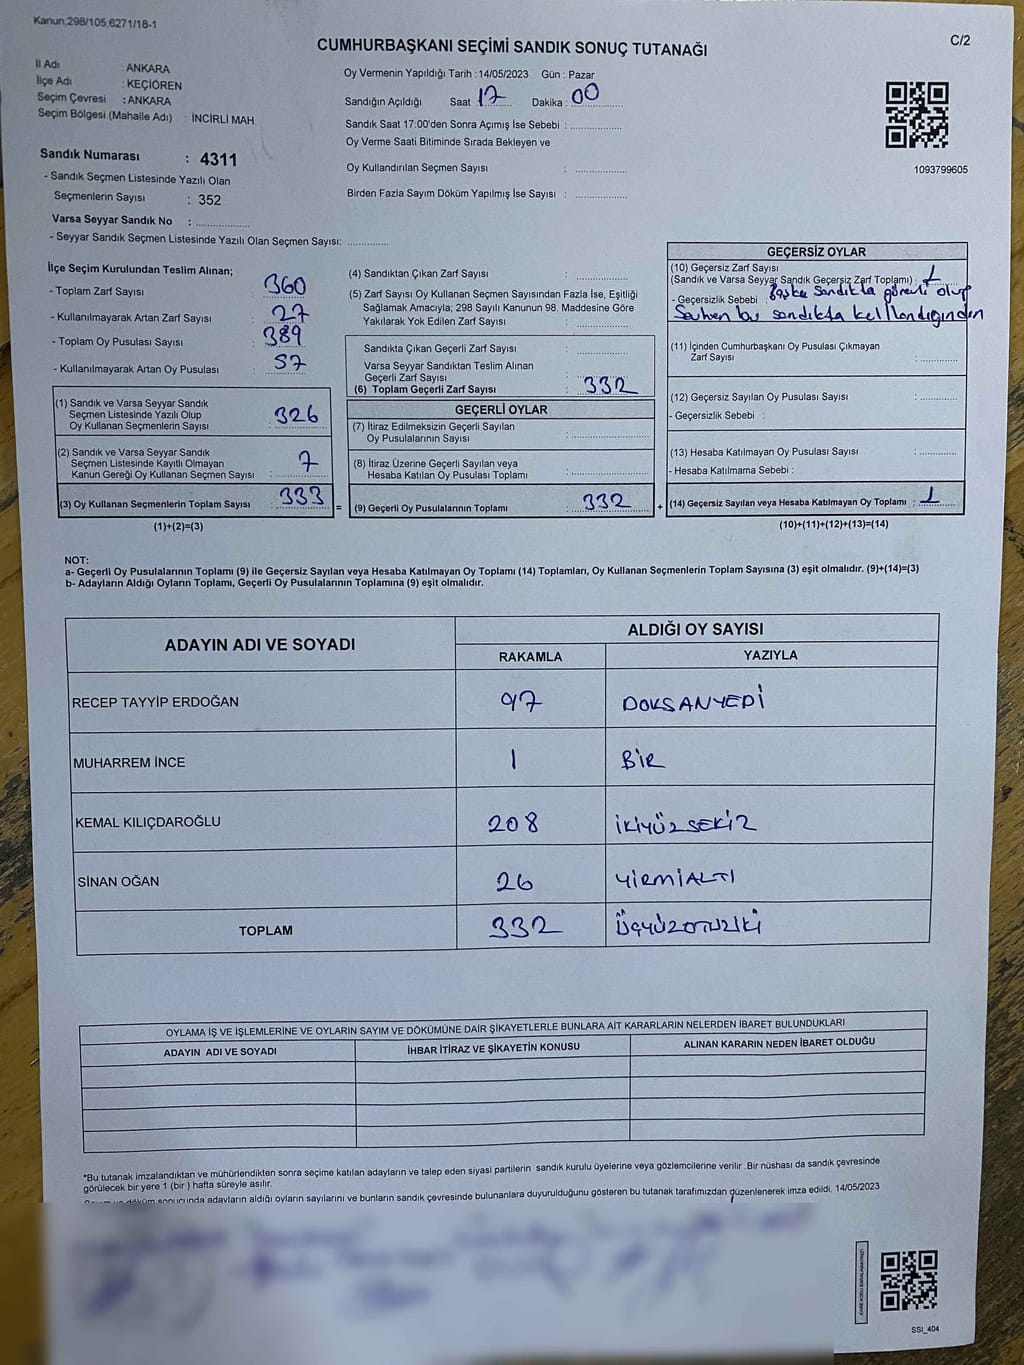 Kanun:298/105,6271/18-1
C/2
CUMHURBAŞKANI SEÇİMİ SANDIK SONUÇ TUTANAĞI
İl Adı : ANKARA
İlçe Adı : KEÇİÖREN
Seçim Çevresi : ANKARA
Seçim Bölgesi (Mahalle Adı) : İNCİRLİ MAH.
Sandık Numarası : 4311
- Sandık Seçmen Listesinde Yazılı Olan
Seçmenlerin Sayısı : 352
Varsa Seyyar Sandık No : ................
- Seyyar Sandık Seçmen Listesinde Yazılı Olan Seçmen Sayısı: ............
Oy Vermenin Yapıldığı Tarih : 14/05/2023 Gün : Pazar
Sandığın Açıldığı Saat 17 Dakika : 00
Sandık Saat 17:00'den Sonra Açımış İse Sebebi : ................
Oy Verme Saati Bitiminde Sırada Bekleyen ve
Oy Kullandırılan Seçmen Sayısı : ................
Birden Fazla Sayım Döküm Yapılmış İse Sayısı : ................
1093799605
İlçe Seçim Kurulundan Teslim Alınan;
- Toplam Zarf Sayısı : 360
- Kullanılmayarak Artan Zarf Sayısı : 27
- Toplam Oy Pusulası Sayısı : 389
- Kullanılmayarak Artan Oy Pusulası : 57
(1) Sandık ve Varsa Seyyar Sandık
Seçmen Listesinde Yazılı Olup
Oy Kullanan Seçmenlerin Sayısı : 326
(2) Sandık ve Varsa Seyyar Sandık
Seçmen Listesinde Kayıtlı Olmayan
Kanun Gereği Oy Kullanan Seçmen Sayısı : 7
(3) Oy Kullanan Seçmenlerin Toplam Sayısı : 333 =
(1)+(2)=(3)
(4) Sandıktan Çıkan Zarf Sayısı : ................
(5) Zarf Sayısı Oy Kullanan Seçmen Sayısından Fazla İse, Eşitliği
Sağlamak Amacıyla, 298 Sayılı Kanunun 98. Maddesine Göre
Yakılarak Yok Edilen Zarf Sayısı : ................
Sandıkta Çıkan Geçerli Zarf Sayısı : ................
Varsa Seyyar Sandıktan Teslim Alınan
Geçerli Zarf Sayısı : ................
(6) Toplam Geçerli Zarf Sayısı : 332
GEÇERLİ OYLAR
(7) İtiraz Edilmeksizin Geçerli Sayılan
Oy Pusulalarının Sayısı : ................
(8) İtiraz Üzerine Geçerli Sayılan veya
Hesaba Katılan Oy Pusulası Toplamı : ................
(9) Geçerli Oy Pusulalarının Toplamı : 332 +
GEÇERSİZ OYLAR
(10) Geçersiz Zarf Sayısı
(Sandık ve Varsa Seyyar Sandık Geçersiz Zarf Toplamı) : 1
- Geçersizlik Sebebi : Başka Sandıkta görevli olup
Sehven bu sandıkta
(11) İçinden Cumhurbaşkanı Oy Pusulası Çıkmayan
Zarf Sayısı : ............
(12) Geçersiz Sayılan Oy Pusulası Sayısı : ............
- Geçersizlik Sebebi :
(13) Hesaba Katılmayan Oy Pusulası Sayısı : ............
- Hesaba Katılmama Sebebi :
(14) Geçersiz Sayılan veya Hesaba Katılmayan Oy Toplamı : 1
(10)+(11)+(12)+(13)=(14)
NOT:
a- Geçerli Oy Pusulalarının Toplamı (9) ile Geçersiz Sayılan veya Hesaba Katılmayan Oy Toplamı (14) Toplamları, Oy Kullanan Seçmenlerin Toplam Sayısına (3) eşit olmalıdır. (9)+(14)=(3)
b- Adayların Aldığı Oyların Toplamı, Geçerli Oy Pusulalarının Toplamına (9) eşit olmalıdır.
ADAYIN ADI VE SOYADI ALDIĞI OY SAYISI
RAKAMLA YAZIYLA
RECEP TAYYİP ERDOĞAN 97 DOKSANYEDİ
MUHARREM İNCE 1 BİR
KEMAL KILIÇDAROĞLU 208 İKİYÜZSEKİZ
SİNAN OĞAN 26 YİRMİALTI
TOPLAM 332 ÜÇYÜZOTUZİKİ
OYLAMA İŞ VE İŞLEMLERİNE VE OYLARIN SAYIM VE DÖKÜMÜNE DAİR ŞİKAYETLERLE BUNLARA AİT KARARLARIN NELERDEN İBARET BULUNDUKLARI
ADAYIN ADI VE SOYADI İHBAR İTİRAZ VE ŞİKAYETİN KONUSU ALINAN KARARIN NEDEN İBARET OLDUĞU
*Bu tutanak imzalandıktan ve mühürlendikten sonra seçime katılan adayların ve talep eden siyasi partilerin sandık kurulu üyelerine veya gözlemcilerine verilir .Bir nüshası da sandık çevresinde
görülecek bir yere 1 (bir ) hafta süreyle asılır.
sonucunda adayların aldığı oyların sayılarını ve bunların sandık çevresinde bulunanlara duyurulduğunu gösteren bu tutanak tarafımızdan düzenlenerek imza edildi. 14/05/2023
SSI_404